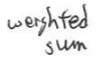 weighted
sum